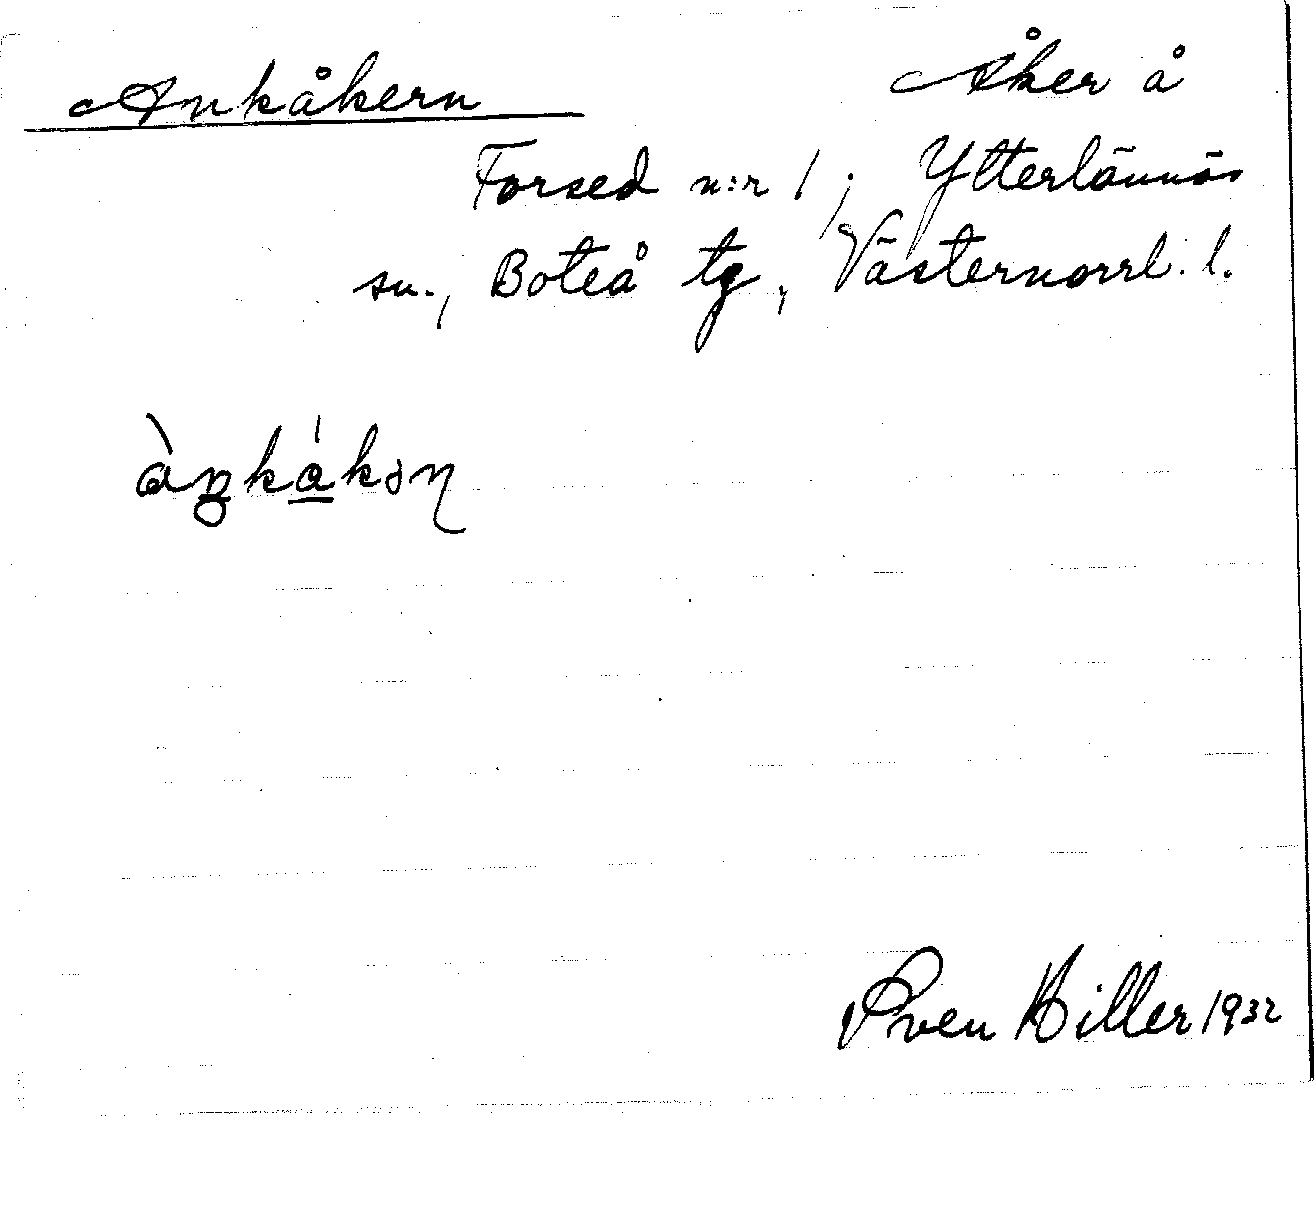 Ankåkern Åker å
Forsed n:r 1, Ytterlännäs
sn., Boteå tg, Västernorrl. l.
Sven Hiller 1932